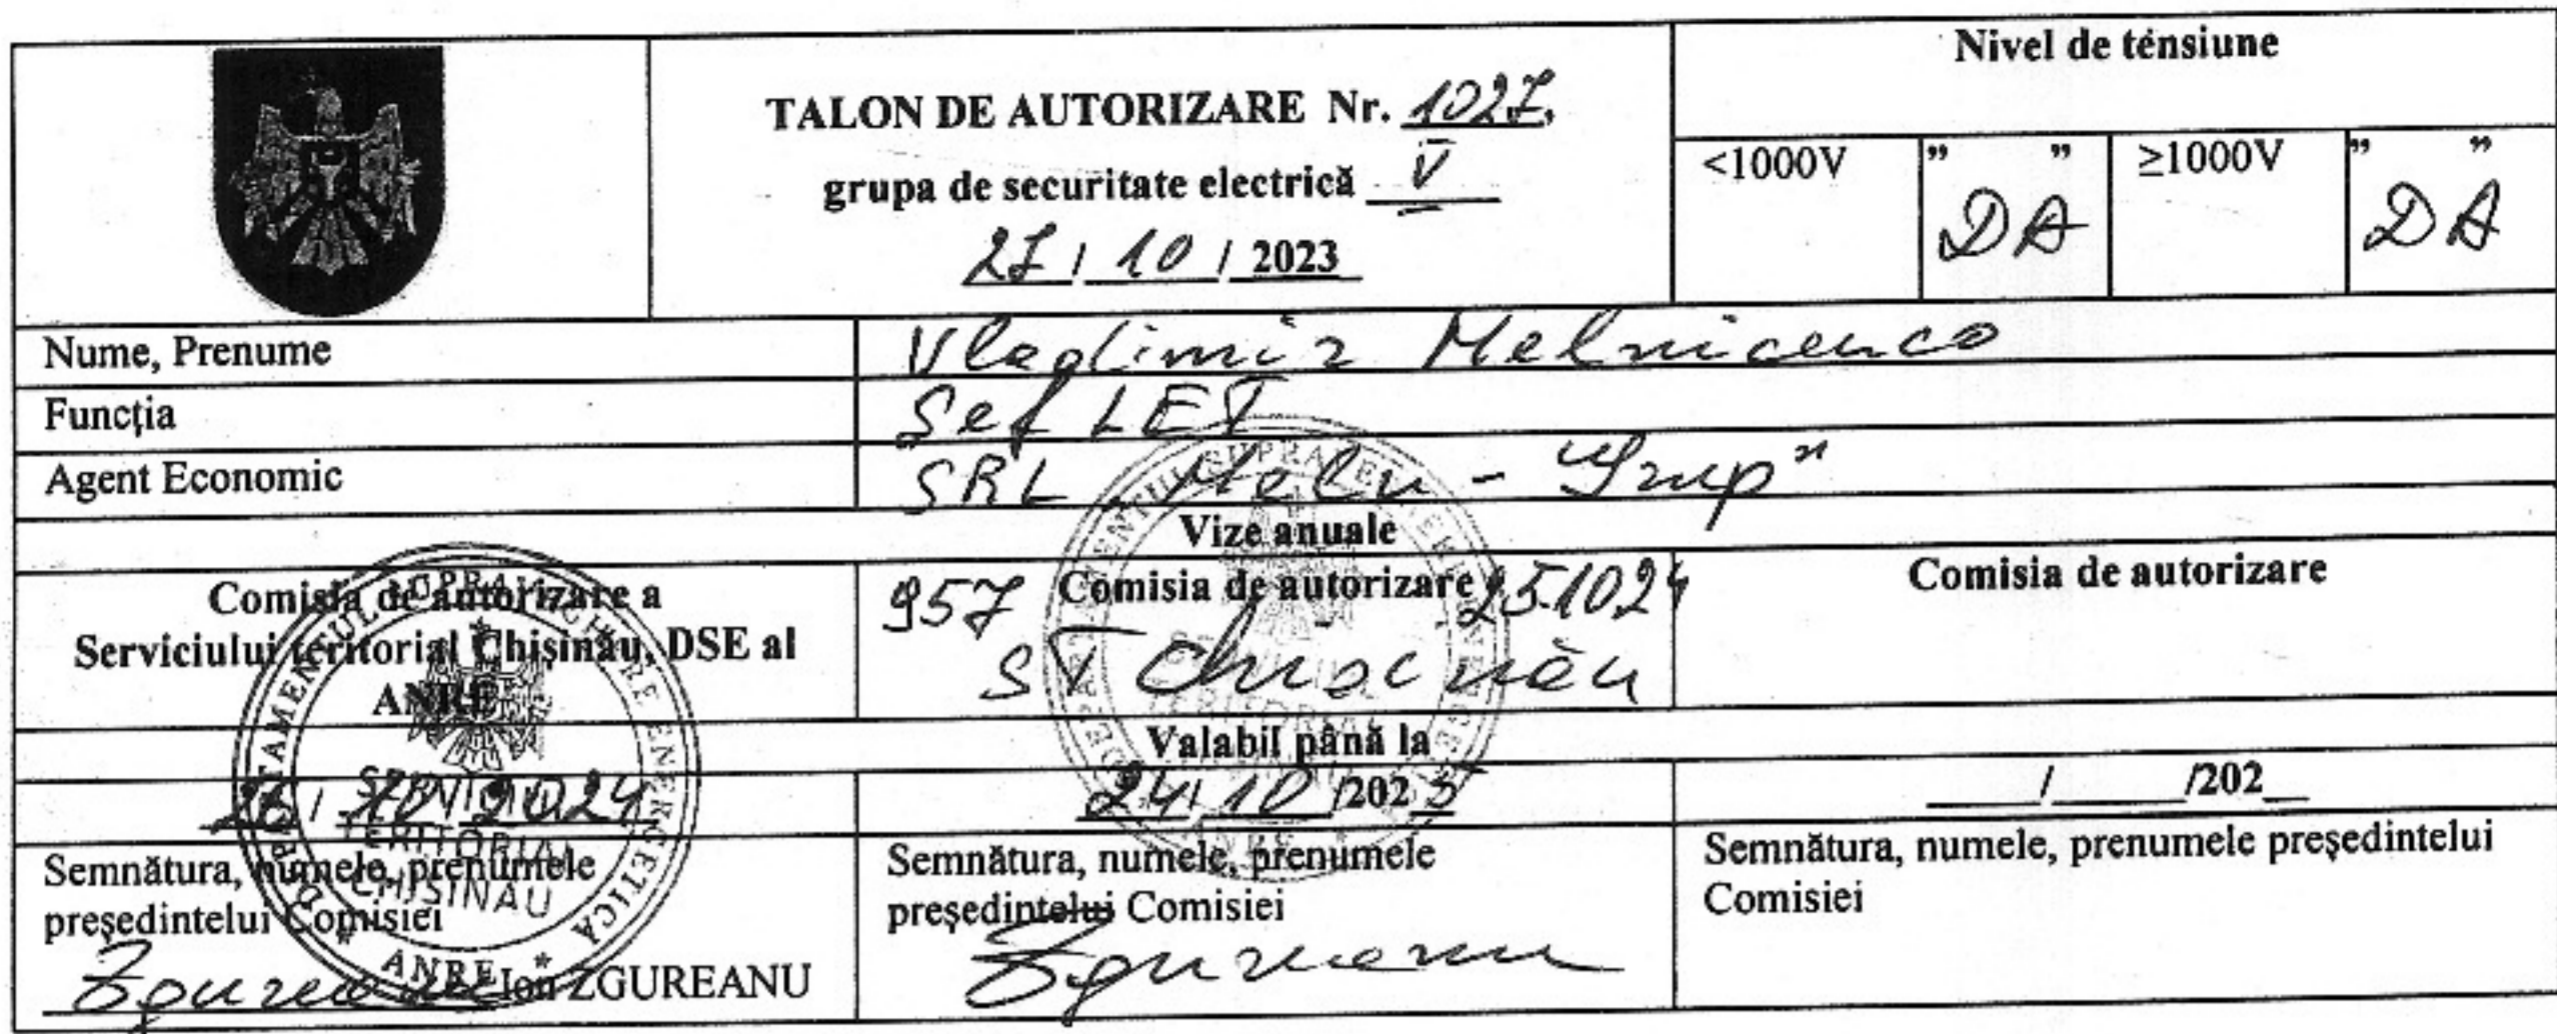 TALON DE AUTORIZARE Nr. 1027
grupa de securitate electrică V
27 / 10 / 2023
Nivel de tensiune
<1000V " DA " ≥1000V " DA "
Nume, Prenume Vladimir Melnicenco
Funcția Sef LET
Agent Economic SRL „Meln-Grup"
Vize anuale
Comisia de autorizare a
Serviciului teritorial Chișinău, DSE al
ANRE
957 Comisia de autorizare 25.10.24
ST Chisinău
Comisia de autorizare
Valabil până la
26 / 10 / 2024
24 / 10 /2025
____/______/202__
Semnătura, numele, prenumele
președintelui Comisiei
Zgureanu Ion ZGUREANU
Semnătura, numele, prenumele
președintelui Comisiei
Zgureanu
Semnătura, numele, prenumele președintelui
Comisiei
DEPARTAMENTUL SUPRAVEGHERE ENERGETICĂ * ANRE *
SERVICIUL
TERITORIAL
CHIȘINĂU